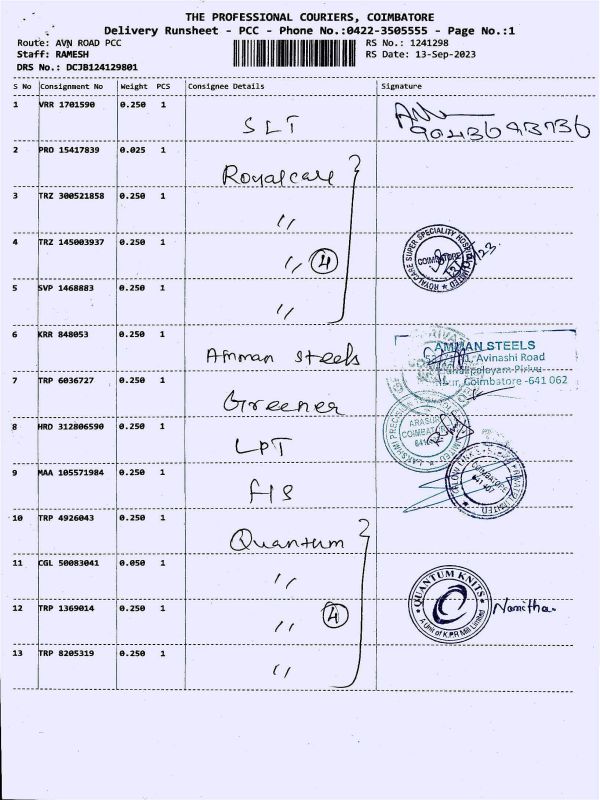 THE PROFESSIONAL COURIERS, COIMBATORE
Delivery Runsheet - PCC - Phone No.:0422-3505555 - Page No.:1
Route: AVN ROAD PCC
RS No.: 1241298
Staff: RAMESH
RS Date: 13-Sep-2023
DRS No.: DCJB124129801
S No Consignment No Weight PCS Consignee Details Signature
1 VRR 1701590 0.250 1
SLT
9043693736
2 PRO 15417839 0.025 1
Royalcare
3 TRZ 300521858 0.250 1
"
4 TRZ 145003937 0.250 1
" 4
ROYALCARE SUPER SPECIALITY HOSPITAL LIMITED
COIMBATORE
5 SVP 1468883 0.250 1
"
6 KRR 848053 0.250 1
Amman steels
AMMAN STEELS
Avinashi Road
Coimbatore -641 062
7 TRP 6036727 0.250 1
Greener
8 HRD 312806590 0.250 1
LPT
ARASUR
COIMBATORE
9 MAA 105571984 0.250 1
HS
COIMBATORE
LIMITED
10 TRP 4926043 0.250 1
Quantum
11 CGL 50083041 0.050 1
"
QUANTUM KNITS
A Unit of K.P.R Mill Limited
Namitha
12 TRP 1369014 0.250 1
" 4
13 TRP 8205319 0.250 1
"